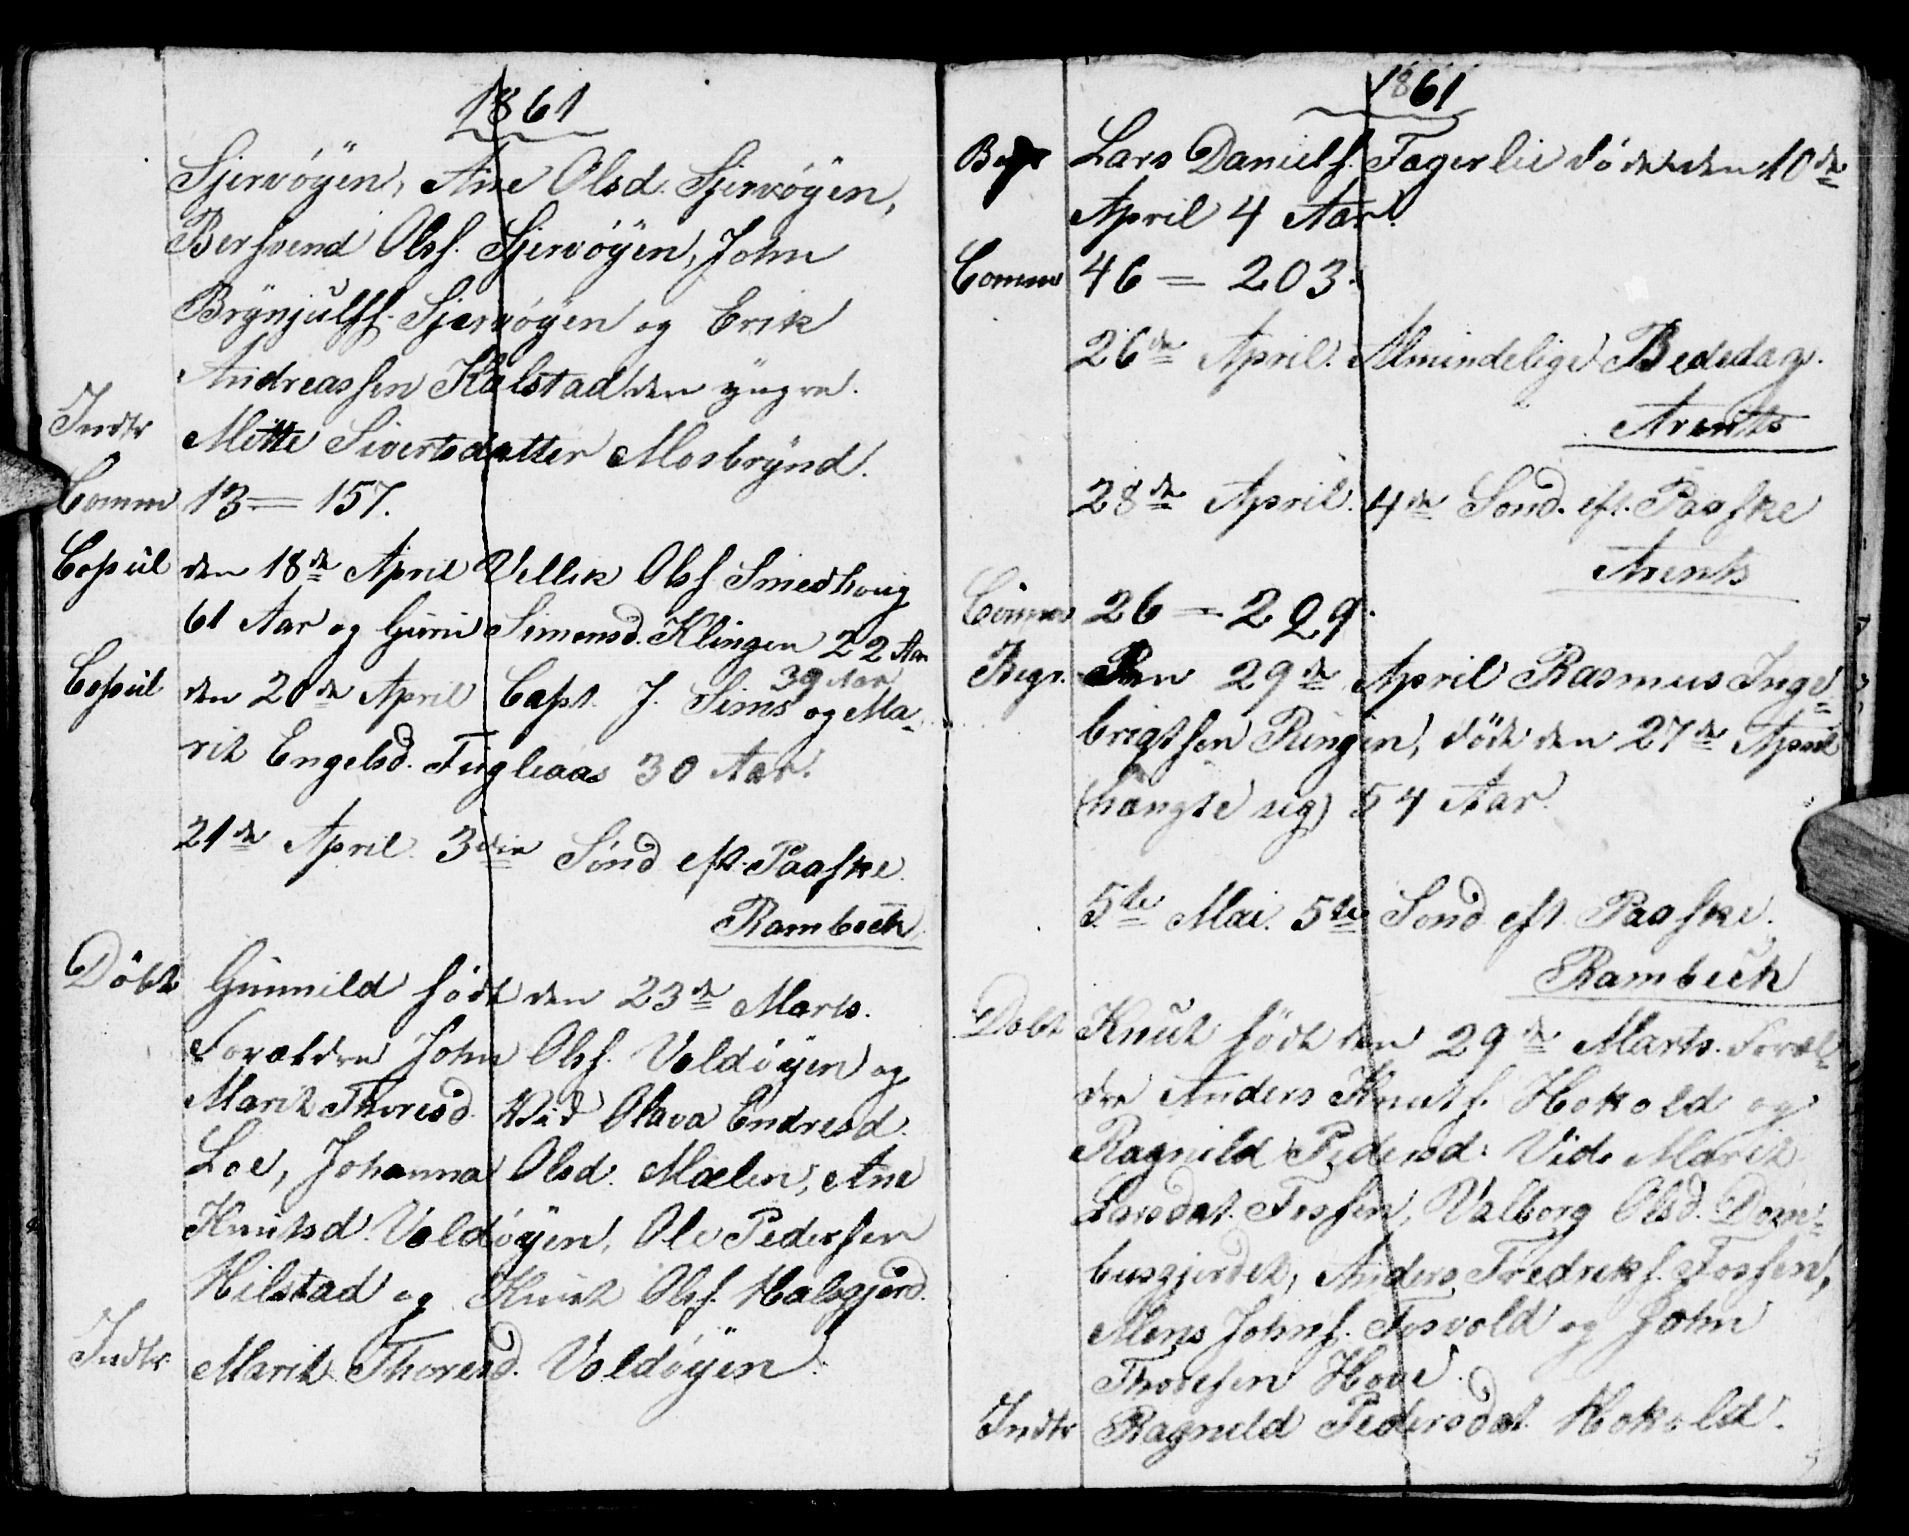 1861
Sjervöÿen, Ane Olsd. Sjervöÿen,
Bersvend Olsf. Sjervöÿen, John
Brÿnjulfs. Sjervöÿen og Erik
Andreassen Kalstad den ÿngre.
Indtr Mette Sivertsdatter Mosbrÿnd.
Comm 13 = 157.
Copul den 18de April Ellik Olsf Smedhoug
61 Aar og Guri Simensd. Klingen 22 Aar
39 Aar
Copul den 20de April Capt. J. Sims og Ma-
rit Engelsd. Fugleaas 30 Aar.
21de April. 3die Sönd eft. Paaske.
Rambech
Döbt Gunnild född den 23de Marts.
Forældre John Olsf. Voldöÿen og
Marit Thoresd. Vid Olava Endresd.
Loe, Johanna Olsd. Mælen, Ane
Knutsd. Voldöÿen, Ole Pedersen
Hilstad og Knut Olsf. Halsgjerd.
Indtr. Marit Thoresd. Voldöÿen.
1861
Begr Lars Danielf. Fagerlie döde den 10de
April 4 Aar.
Comm 46 = 203.
26de April. Almindelige Bededag.
Arents
28de April. 4de Sönd. eft. Paaske
Arents
Comm 26 = 229.
Begr. Den 29de April Rasmus Inge-
brigtsen Ringen, döde den 27de April
(hængte sig) 54 Aar.
5te Mai. 5te Sönd eft. Paaske.
Rambech
Döbt Knut född den 29de Marts. Foræl-
dre Anders Knutf. Hokold og
Ragnild Pedersd. Vid. Marit
Larsdat. Fossen, Valborg Olsd. Dom-
busgjerdet, Anders Fredrikf. Fossen,
Mons Johnf. Fosvold og John
Thoresen Hove.
Indtr Ragnild Pedersdat. Hokold.